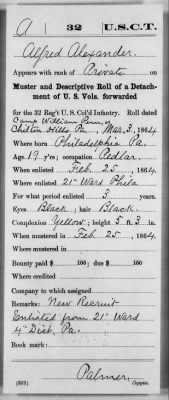 A | 32 | U.S.C.T.
Alfred Alexander.
Appears with rank of Private on
Muster and Descriptive Roll of a Detach-
ment of U. S. Vols. forwarded
for the 32 Reg't U. S. Col'd Infantry. Roll dated
Camp William Penn
Chilton Hills Pa., Mar. 3, 1864
Where born Philadelphia Pa.
Age 19 y'rs; occupation Pedlar.
When enlisted Feb. 25, 1864.
Where enlisted 21st Ward Phila
For what period enlisted 3 years.
Eyes Black; hair Black.
Complexion Yellow; height 5 ft. 3 in.
When mustered in Feb. 25, 1864.
Where mustered in
Bounty paid $ 100; due $ 100
Where credited
Company to which assigned
Remarks: New Recruit
Enlisted from 21st Ward
4th Dist. Pa.
Book mark:
Palmer
(339) Copyist.